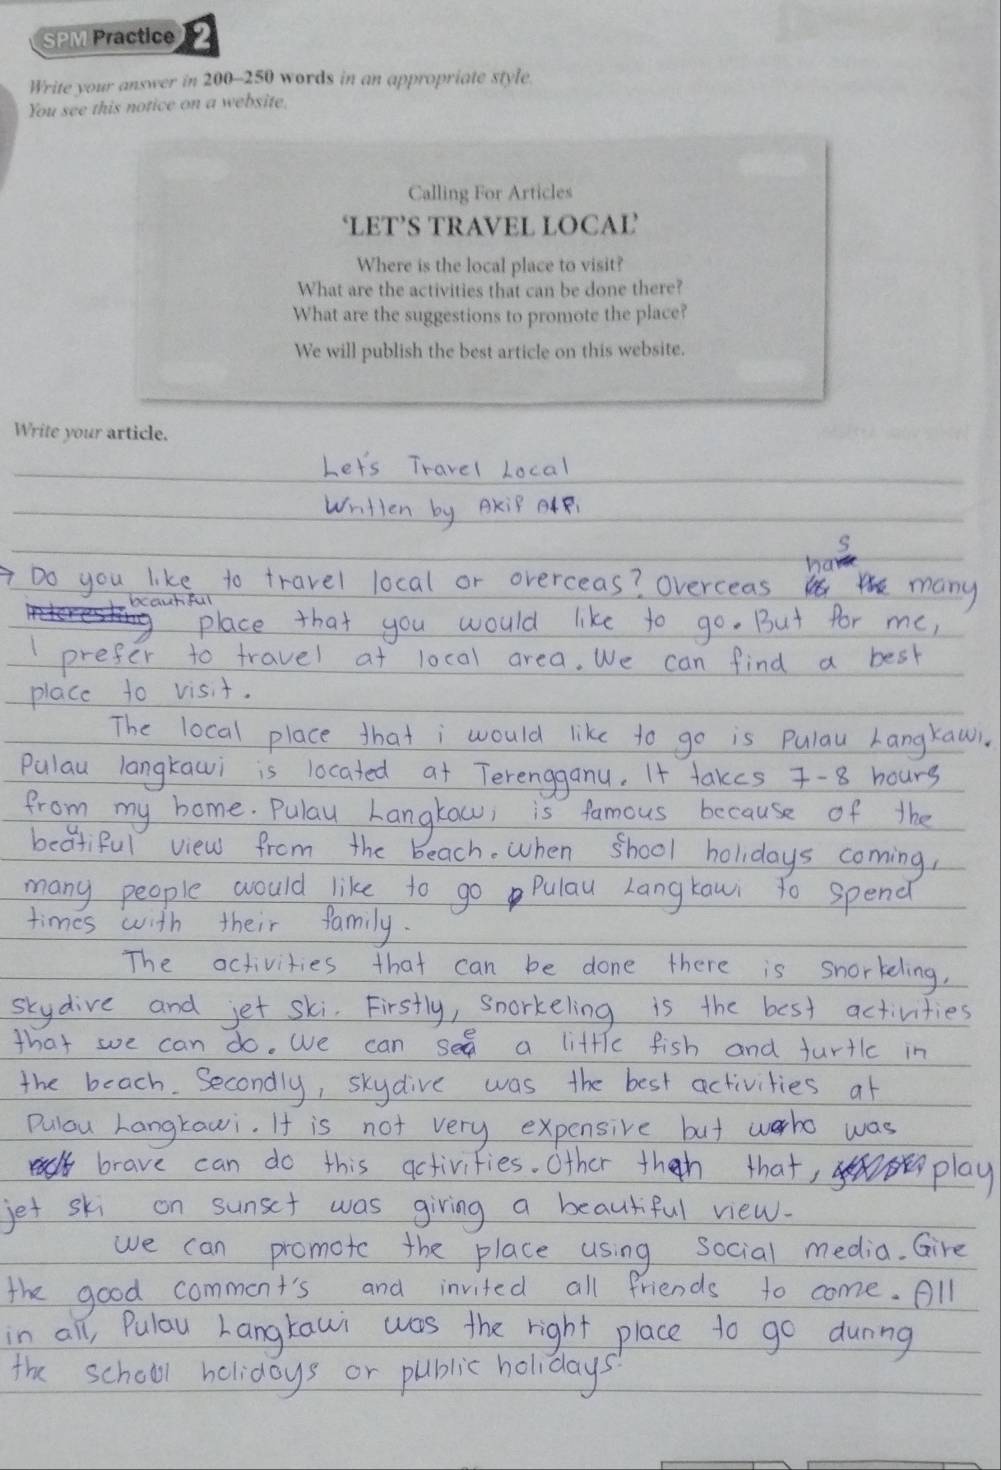 SPM Practice 2
Write your answer in 200–250 words in an appropriate style.
You see this notice on a website.
Calling For Articles
'LET'S TRAVEL LOCAL'
Where is the local place to visit?
What are the activities that can be done there?
What are the suggestions to promote the place?
We will publish the best article on this website.
Write your article.
Let's Travel Local
Written by Akif Affi
Do you like to travel local or overceas? Overceas has many
beautiful place that you would like to go. But for me,
I prefer to travel at local area. We can find a best
place to visit.
The local place that i would like to go is Pulau Langkawi.
Pulau langkawi is located at Terengganu. It takes 7-8 hours
from my home. Pulau Langkawi is famous because of the
beautiful view from the beach. When shool holidays coming,
many people would like to go Pulau Langkawi to spend
times with their family.
The activities that can be done there is snorkeling,
skydive and jet ski. Firstly, snorkeling is the best activities
that we can do. We can see a little fish and turtle in
the beach. Secondly, skydive was the best activities at
Pulau Langkawi. It is not very expensive but who was
brave can do this activities. Other than that, play
jet ski on sunset was giving a beautiful view.
We can promote the place using social media. Give
the good comment's and invited all friends to come. All
in all, Pulau Langkawi was the right place to go during
the school holidays or public holidays.